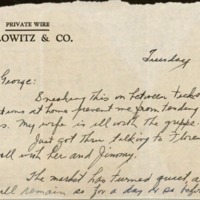 PRIVATE WIRE
LOWITZ & CO.
Tuesday
George:
Sneaking this on between ticks
tions at home prevent me from tending
s. My wife is ill with the grippe.
Just got thru talking to Floren
all well with her and Jimmy.
The market has turned quiet a
ill remain so for a day or so befor